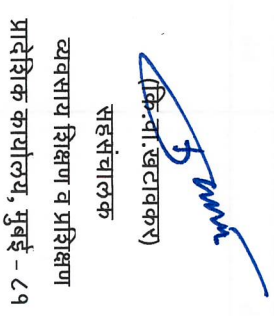 (कि.वा.खटावकर)
सहसंचालक
व्यवसाय शिक्षण व प्रशिक्षण
प्रादेशिक कार्यालय, मुंबई - ८१